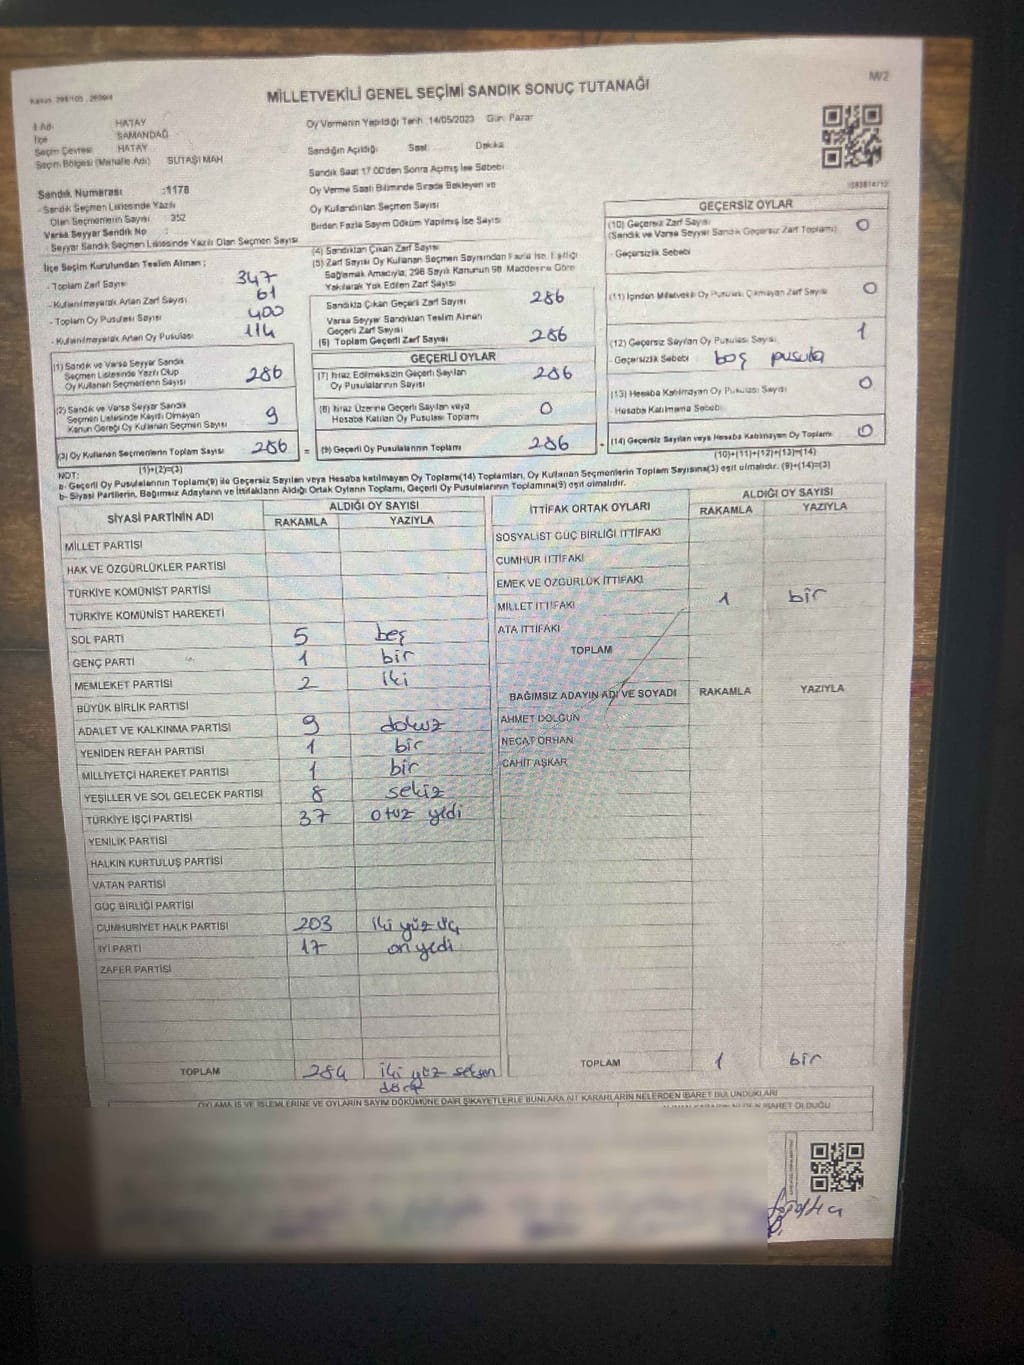 Kanun: 298/105 , 2839/4
MİLLETVEKİLİ GENEL SEÇİMİ SANDIK SONUÇ TUTANAĞI
M/2
İl Adı HATAY
İlçe SAMANDAĞ
Seçim Çevresi HATAY
Seçim Bölgesi (Mahalle Adı) SUTAŞI MAH
Sandık Numarası :1178
- Sandık Seçmen Listesinde Yazılı
Olan Seçmenlerin Sayısı : 352
Varsa Seyyar Sandık No :
- Seyyar Sandık Seçmen Listesinde Yazılı Olan Seçmen Sayısı
Oy Vermenin Yapıldığı Tarih 14/05/2023 Gün: Pazar
Sandığın Açıldığı Saat Dakika
Sandık Saat 17.00'den Sonra Açılmış İse Sebebi
Oy Verme Saati Bitiminde Sırada Bekleyen ve
Oy Kullandırılan Seçmen Sayısı
Birden Fazla Sayım Döküm Yapılmış İse Sayısı
İlçe Seçim Kurulundan Teslim Alınan ;
- Toplam Zarf Sayısı 347
- Kullanılmayarak Artan Zarf Sayısı 61
- Toplam Oy Pusulası Sayısı 400
- Kullanılmayarak Artan Oy Pusulası 114
(1) Sandık ve Varsa Seyyar Sandık
Seçmen Listesinde Yazılı Olup
Oy Kullanan Seçmenlerin Sayısı 286
(2) Sandık ve Varsa Seyyar Sandık
Seçmen Listesinde Kayıtlı Olmayan
Kanun Gereği Oy Kullanan Seçmen Sayısı 9
(3) Oy Kullanan Seçmenlerin Toplam Sayısı 286 =
(1)+(2)=(3)
(4) Sandıktan Çıkan Zarf Sayısı
(5) Zarf Sayısı Oy Kullanan Seçmen Sayısından Fazla İse, Eşitliği
Sağlamak Amacıyla, 298 Sayılı Kanunun 98. Maddesine Göre
Yakılarak Yok Edilen Zarf Sayısı
Sandıkta Çıkan Geçerli Zarf Sayısı 286
Varsa Seyyar Sandıktan Teslim Alınan
Geçerli Zarf Sayısı
(6) Toplam Geçerli Zarf Sayısı 286
GEÇERLİ OYLAR
(7) İtiraz Edilmeksizin Geçerli Sayılan
Oy Pusulalarının Sayısı 286
(8) İtiraz Üzerine Geçerli Sayılan veya
Hesaba Katılan Oy Pusulası Toplamı 0
(9) Geçerli Oy Pusulalarının Toplamı 286 +
GEÇERSİZ OYLAR
(10) Geçersiz Zarf Sayısı 0
(Sandık ve Varsa Seyyar Sandık Geçersiz Zarf Toplamı)
- Geçersizlik Sebebi
(11) İçinden Milletvekili Oy Pusulası Çıkmayan Zarf Sayısı 0
(12) Geçersiz Sayılan Oy Pusulası Sayısı 1
- Geçersizlik Sebebi boş pusula
(13) Hesaba Katılmayan Oy Pusulası Sayısı 0
Hesaba Katılmama Sebebi
(14) Geçersiz Sayılan veya Hesaba Katılmayan Oy Toplamı 0
(10)+(11)+(12)+(13)=(14)
NOT:
a- Geçerli Oy Pusulalarının Toplamı(9) ile Geçersiz Sayılan veya Hesaba katılmayan Oy Toplamı(14) Toplamları, Oy Kullanan Seçmenlerin Toplam Sayısına(3) eşit olmalıdır. (9)+(14)=(3)
b- Siyasi Partilerin, Bağımsız Adayların ve İttifakların Aldığı Ortak Oyların Toplamı, Geçerli Oy Pusulalarının Toplamına(9) eşit olmalıdır.
SİYASİ PARTİNİN ADI ALDIĞI OY SAYISI
RAKAMLA YAZIYLA
MİLLET PARTİSİ
HAK VE ÖZGÜRLÜKLER PARTİSİ
TÜRKİYE KOMÜNİST PARTİSİ
TÜRKİYE KOMÜNİST HAREKETİ
SOL PARTİ 5 beş
GENÇ PARTİ 1 bir
MEMLEKET PARTİSİ 2 iki
BÜYÜK BİRLİK PARTİSİ
ADALET VE KALKINMA PARTİSİ 9 dokuz
YENİDEN REFAH PARTİSİ 1 bir
MİLLİYETÇİ HAREKET PARTİSİ 1 bir
YEŞİLLER VE SOL GELECEK PARTİSİ 8 sekiz
TÜRKİYE İŞÇİ PARTİSİ 37 otuz yedi
YENİLİK PARTİSİ
HALKIN KURTULUŞ PARTİSİ
VATAN PARTİSİ
GÜÇ BİRLİĞİ PARTİSİ
CUMHURİYET HALK PARTİSİ 203 iki yüz üç
İYİ PARTİ 17 on yedi
ZAFER PARTİSİ
TOPLAM 284 iki yüz seksen
dört
İTTİFAK ORTAK OYLARI ALDIĞI OY SAYISI
RAKAMLA YAZIYLA
SOSYALİST GÜÇ BİRLİĞİ İTTİFAKI
CUMHUR İTTİFAKI
EMEK VE ÖZGÜRLÜK İTTİFAKI
MİLLET İTTİFAKI 1 bir
ATA İTTİFAKI
TOPLAM
BAĞIMSIZ ADAYIN ADI VE SOYADI RAKAMLA YAZIYLA
AHMET DOLGUN
NECAT ORHAN
CAHİT AŞKAR
TOPLAM 1 bir
OYLAMA İŞ VE İŞLEMLERİNE VE OYLARIN SAYIM DÖKÜMÜNE DAİR ŞİKAYETLERLE BUNLARA AİT KARARLARIN NELERDEN İBARET BULUNDUKLARI
İBARET OLDUĞU